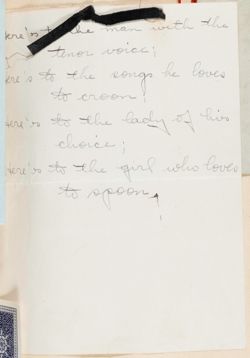 Here's to the man with the
tenor voice;
Here's to the songs he loves
to croon;
Here's to the lady of his
choice;
Here's to the girl who loves
to spoon.